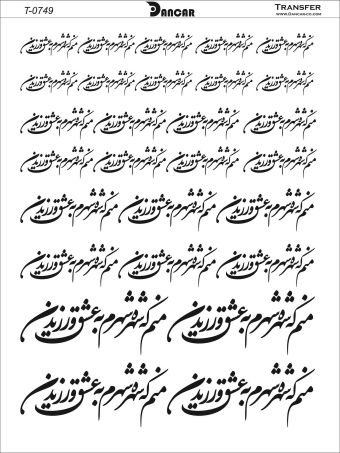 T-0749 DANCAR TRANSFER
www.Dancar-co.com
منم که شهره شهرم به عشق ورزیدن منم که شهره شهرم به عشق ورزیدن منم که شهره شهرم به عشق ورزیدن منم که شهره شهرم به عشق ورزیدن منم که شهره شهرم به عشق ورزیدن
منم که شهره شهرم به عشق ورزیدن منم که شهره شهرم به عشق ورزیدن منم که شهره شهرم به عشق ورزیدن منم که شهره شهرم به عشق ورزیدن منم که شهره شهرم به عشق ورزیدن
منم که شهره شهرم به عشق ورزیدن منم که شهره شهرم به عشق ورزیدن منم که شهره شهرم به عشق ورزیدن منم که شهره شهرم به عشق ورزیدن
منم که شهره شهرم به عشق ورزیدن منم که شهره شهرم به عشق ورزیدن منم که شهره شهرم به عشق ورزیدن منم که شهره شهرم به عشق ورزیدن
منم که شهره شهرم به عشق ورزیدن منم که شهره شهرم به عشق ورزیدن منم که شهره شهرم به عشق ورزیدن
منم که شهره شهرم به عشق ورزیدن منم که شهره شهرم به عشق ورزیدن منم که شهره شهرم به عشق ورزیدن
منم که شهره شهرم به عشق ورزیدن منم که شهره شهرم به عشق ورزیدن
منم که شهره شهرم به عشق ورزیدن منم که شهره شهرم به عشق ورزیدن